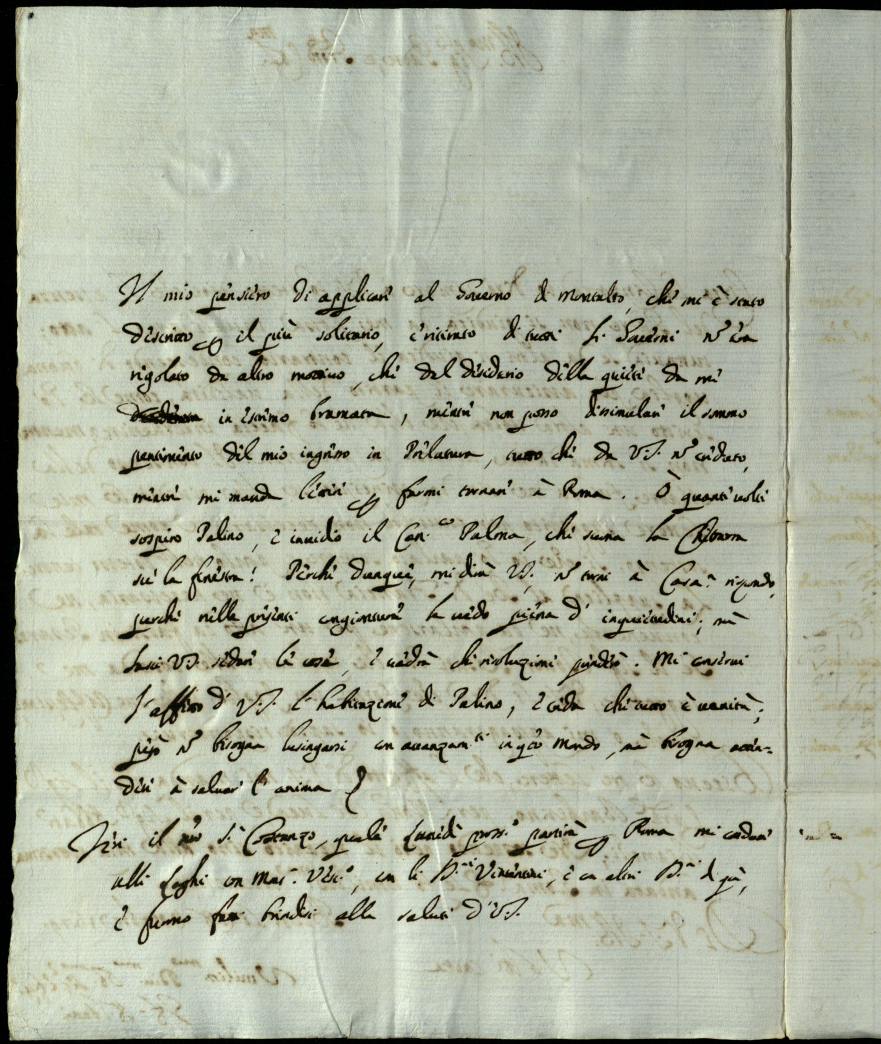 Il mio pensiero di applicare al Governo di Montalto, che mi è stato
descritto p il più solitario, e ritirato di tutti li Governi nō era
regolato da altro motivo, che dal desiderio della quiete da me
in estremo bramata, mentre non posso dissimulare il sommo
pentimento del mio ingresso in Prelatura, tutto che da V.S. nō creduto,
mentre mi manda lettere p farmi tornare à Roma. O quante volte
sospiro Palino, e invidio il Can.co Palma, che suona la Chitarra
sù la fenestra! Perche dunque, mi dirà VS, nō torni à Casa? rispondo,
perche nelle presenti congionture la vedo piena d' inquietudini; mà
lasci VS sedare le cose, e vedrà che risoluzione prenderò. Mi conservi
l'affetto d' V.S. l' habitazione di Palino, e creda che tutto è vanità;
però nō bisogna lusingarsi con avanzam.ti in q̄sto Mondo, mà bisogna atten=
dere à salvar l' anima
Jeri il nro S.r Costanzo, quale Lunedì pross.o partirà p Roma mi
alli Loghi con Mons. , con li P.ni , e con altri P.ni di quà,
e furno fatti brindisi alla salute d' V.S.